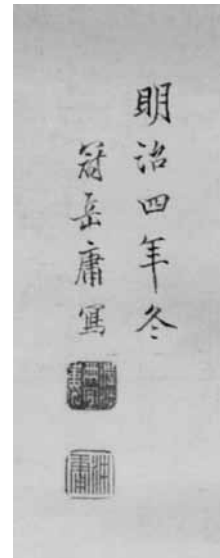 明治四年冬
冠岳庸寫